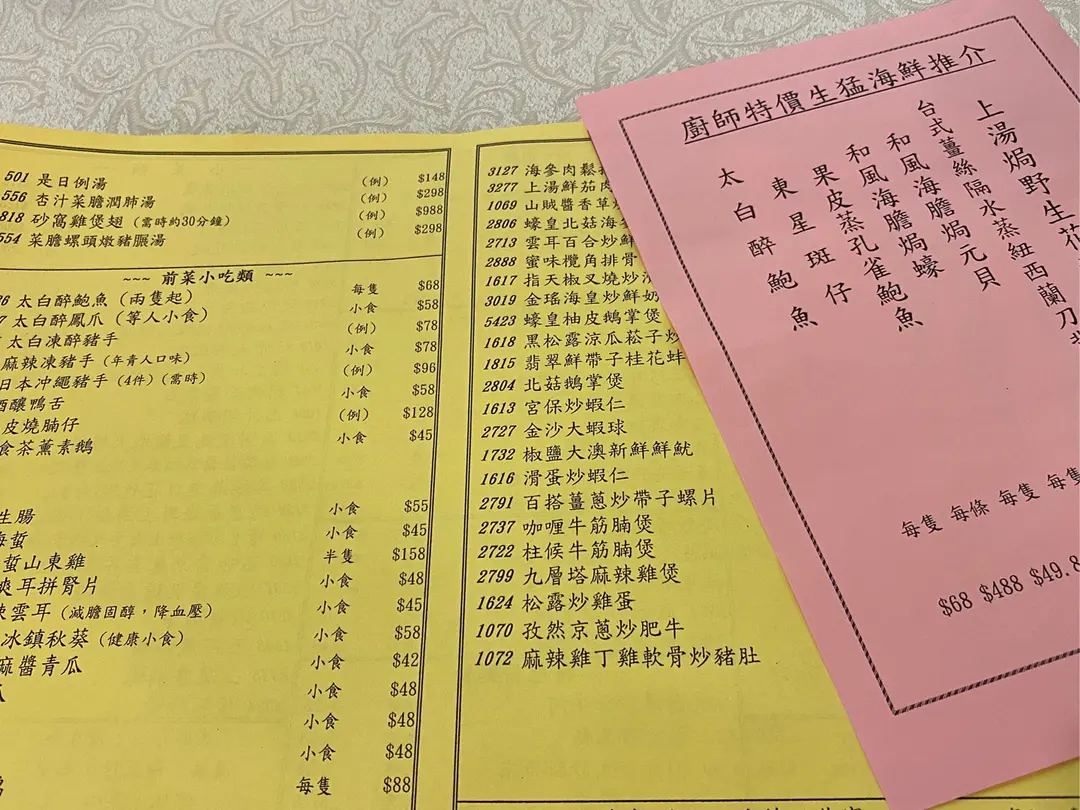 501 是日例湯 (例) $148
556 杏汁菜膽潤肺湯 (例) $298
818 砂窩雞煲翅 (需時約30分鐘) (例) $988
554 菜膽螺頭燉豬𦟌湯 (例) $298
~~~ 前菜小吃類 ~~~
太白醉鮑魚 (兩隻起) 每隻 $68
太白醉鳳爪 (等人小食) 小食 $58
太白凍醉豬手 (例) $78
麻辣凍豬手 (年青人口味) 小食 $78
日本沖繩豬手 (4件) (需時) (例) $96
酒釀鴨舌 小食 $58
皮燒腩仔 (例) $128
食茶薰素鵝 小食 $45
生腸 小食 $55
海蜇 小食 $45
蜇山東雞 半隻 $158
夾耳拼腎片 小食 $48
雲耳 (減膽固醇，降血壓) 小食 $45
冰鎮秋葵 (健康小食) 小食 $58
麻醬青瓜 小食 $42
小食 $48
小食 $48
小食 $48
每隻 $88
3127 海參肉鬆
3277 上湯鮮茄肉
1069 山賊醬香草
2806 蠔皇北菇海
2713 雲耳百合炒鮮
2888 蜜味欖角排骨
1617 指天椒叉燒炒
3019 金瑤海皇炒鮮奶
5423 蠔皇柚皮鵝掌煲
1618 黑松露涼瓜菘子炒
1815 翡翠鮮帶子桂花蚌
2804 北菇鵝掌煲
1613 宮保炒蝦仁
2727 金沙大蝦球
1732 椒鹽大澳新鮮鮮魷
1616 滑蛋炒蝦仁
2791 百搭薑蔥炒帶子螺片
2737 咖喱牛筋腩煲
2722 柱侯牛筋腩煲
2799 九層塔麻辣雞煲
1624 松露炒雞蛋
1070 孜然京蔥炒肥牛
1072 麻辣雞丁雞軟骨炒豬肚
廚師特價生猛海鮮推介
上湯焗野生花
台式薑絲隔水蒸紐西蘭刀
和風海膽焗元貝
和風海膽焗蠔
果皮蒸孔雀鮑魚
東星斑仔
太白醉鮑魚
每隻 每條 每隻 每隻
$68 $488 $49.8